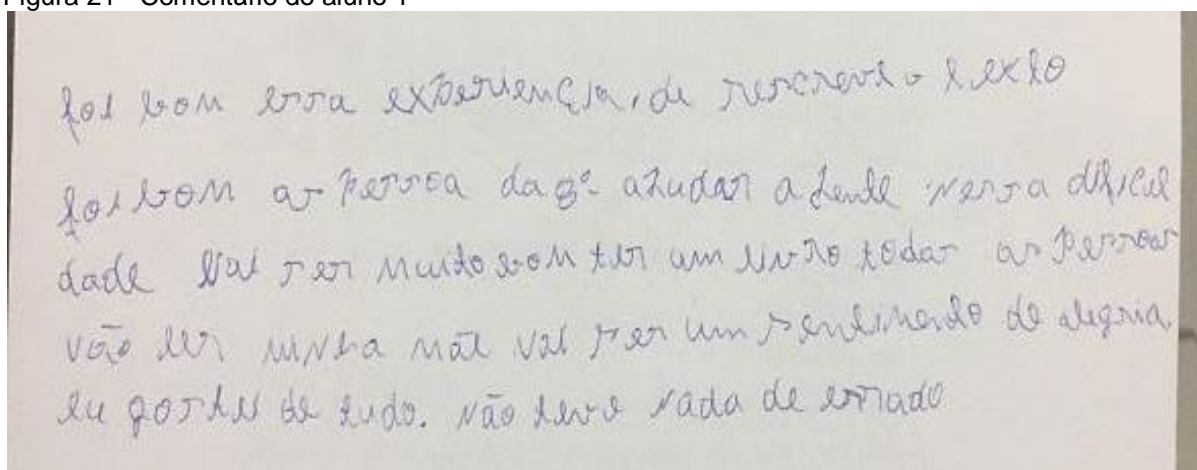 Figura 21 - Comentário do aluno 1
foi bom essa experiencia, de rescreve o texto
foi bom as pessoa da 8ª ajudar a gente nessa dificul
dade Vai ser muito bom ter um livro todas as pessoas
vão ler minha mãe vai ser um sentimento de alegria.
eu gostei de tudo. não teve nada de errado